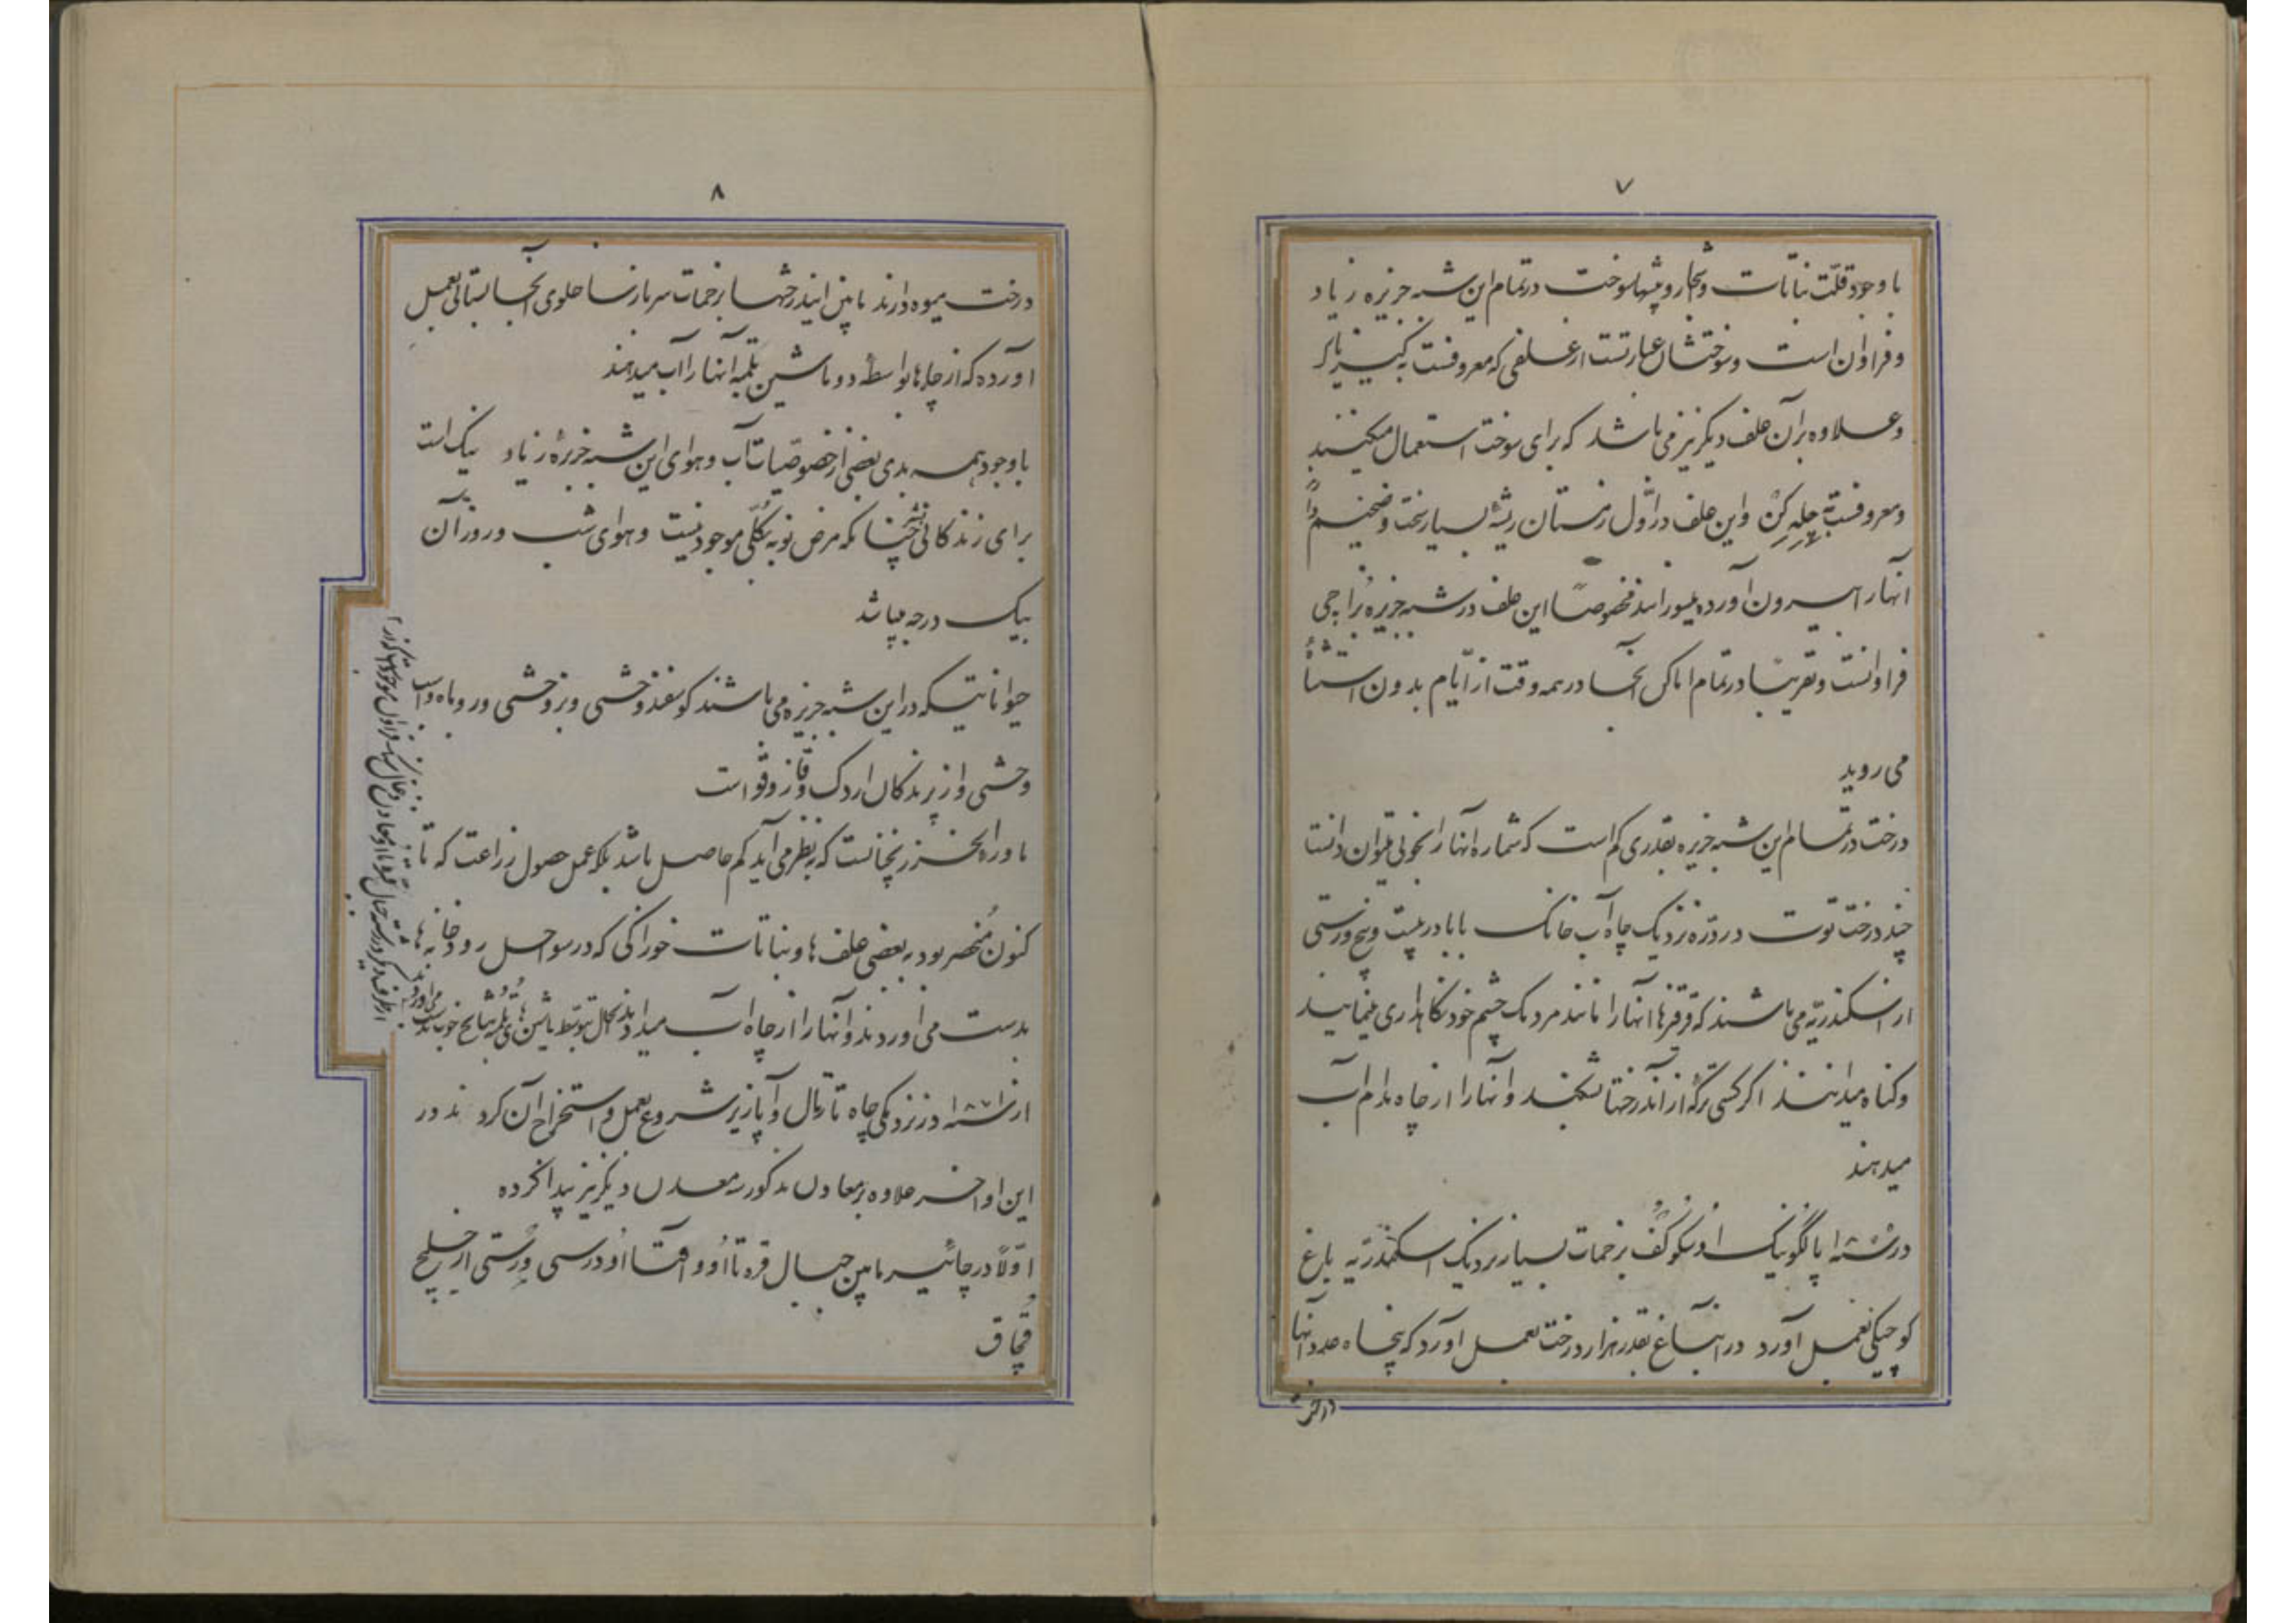 ۷
با وجود قلّت نباتات و اشجار و بیشها سوخت در تمام این شبه جزیره زیاد
و فراوان است و سوختشان عبارتست از علفی که معروفست به
و علاوه بر آن علف دیگر نیز می باشد که برای سوخت استعمال میکنند
و معروفست به چله کن و این علف در اوّل زمستان ریشهٔ بسیار سخت و ضخیم دارد
آنها را بیرون آورده میسوزانند مخصوصاً این علف در شبه جزیره بزاچی
فراوانست و تقریباً در تمام اماکن آنجا در همه وقت از ایّام بدون استثناء
می روید
درخت در تمام این شبه جزیره بقدری کم است که شماره آنها را بخوبی میتوان دانست
چند درخت توت در درّه نزدیک چاه آب خانک بابا در بیست و پنج ورستی
از اسکندریّه می باشند که قرقزها آنها را مانند مردمک چشم خود نگاهداری مینمایند
و گناه میدانند اگر کسی برگهٔ از آندرختها بشکند و آنها را از چاه مدام آب
میدهند
در سنه ۱۸۵ پالکونیک بزحمات بسیار نزدیک اسکندریّه باغ
کوچکی بعمل آورد در آنباغ بقدر هزار درخت بعمل آورد که پنجاه عدد آنها
درخت
۸
درخت میوه دارند مابین ایندرختها بزحمات سرباز ساخلوی آنجا بستانی بعمل
آورده که از چاهها بواسطهٔ دو ماشین تلمبه آنها را آب میدهند
با وجود همه بدی بعضی از خصوصیات آب و هوای این شبه جزیرهٔ زیاد نیک است
برای زندگانی چنانکه مرض نوبه بکلّی موجود نیست و هوای شب و روز آن
بیک درجه میباشد
حیواناتیکه در این شبه جزیره می باشند گوسفند وحشی و بز وحشی و روباه و اسب
وحشی و از پرندگان اردک و قاز و قو است
ماوراء الخزر چنانست که بنظر می آید کم حاصل باشد بلکه عمل حصول زراعت که تا
کنون منحصر بود به بعضی علف ها و نباتات خوراکی که در سواحل رودخانه ها
بدست می آوردند و آنها را از چاه آب میدادند بحال بتوسّط ماشین های تلمبه نتایج خوب بدست می آورند
از سنه ۱۸۷ در نزدیکی چاه تارتال و آپازیر شروع بعمل و استخراج آن کردند در
این اواخر علاوه بر معادن مذکوره معدن دیگر نیز پیدا کرده
اوّلاً در مابین جبال قره تاأو و آقتاأو در سی ورستی از خلیج
قچاق